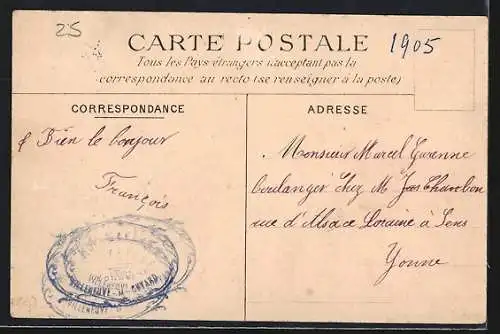 25
CARTE POSTALE
1905
Tous les Pays étrangers n'acceptant pas la
correspondance au recto (se renseigner à la poste)
CORRESPONDANCE
ADRESSE
Bien le bonjour
François
Monsieur Marcel
boulanger chez M
rue d'Alsace Loraine à Sens
Yonne
VILLENEUVE